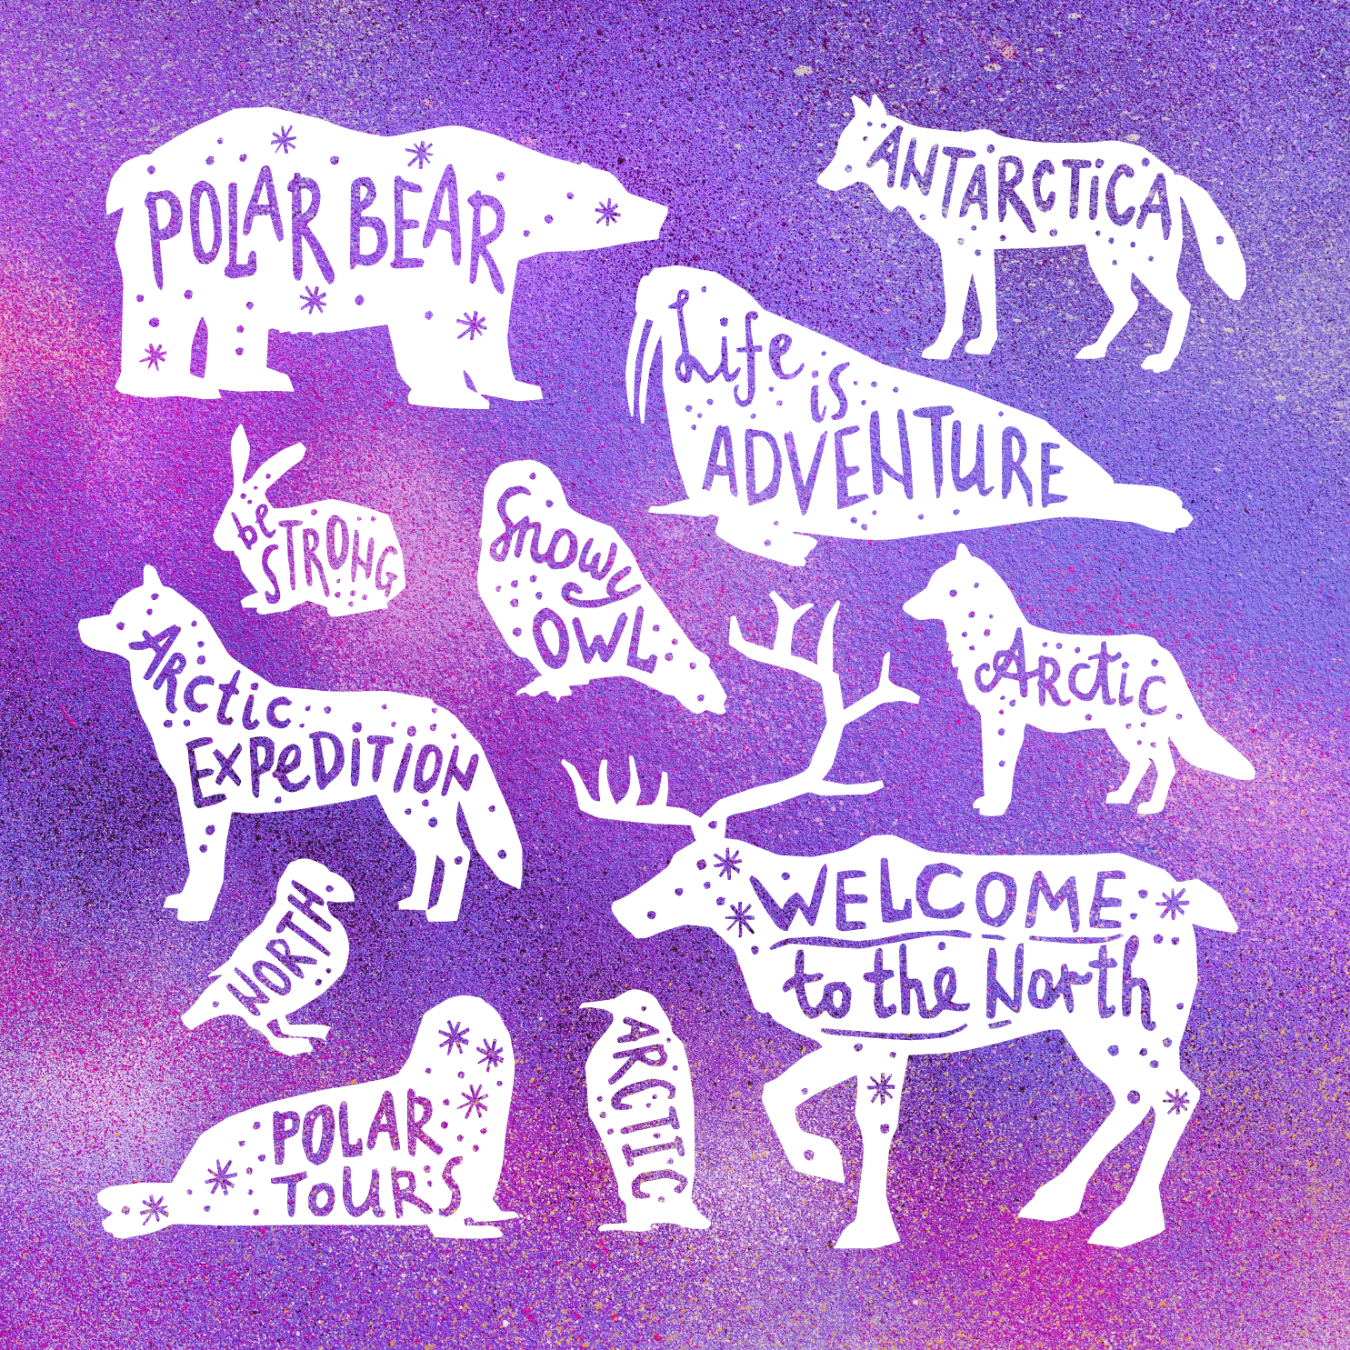 POLAR BEAR
ANTARCTiCA
Life
is
ADVENTURE
be
STRONG
Snowy
OWL
Arctic
ARctic
ExPeDiTION
NORTH
WELCOME
to the North
POLAR
TOURS
ARCTIC